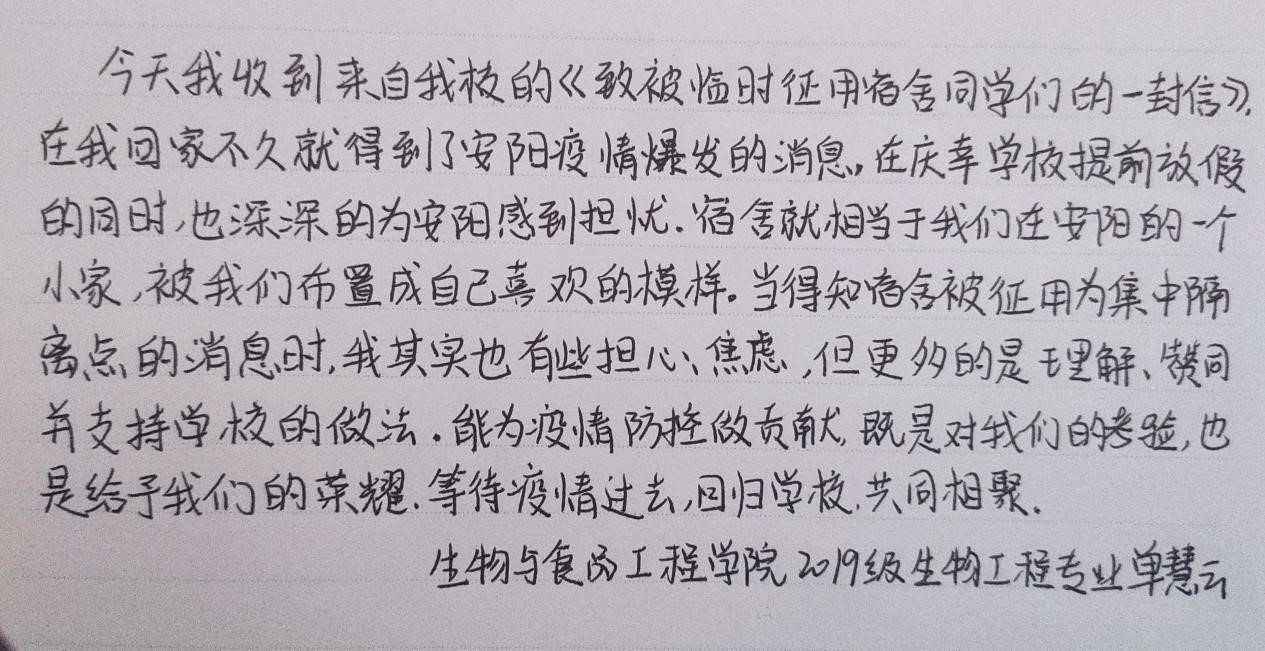 今天我收到来自我校的《致被临时征用宿舍同学们的一封信》,
在我回家不久就得到了安阳疫情爆发的消息,在庆幸学校提前放假
的同时,也深深的为安阳感到担忧.宿舍就相当于我们在安阳的一个
小家,被我们布置成自己喜欢的模样。当得知宿舍被征用为集中隔
离点的消息时,我其实也有些担心、焦虑,但更多的是理解、赞同
并支持学校的做法.能为疫情防控做贡献,既是对我们的考验,也
是给予我们的荣耀.等待疫情过去,回归学校,共同相聚.
生物与食品工程学院2019级生物工程专业单慧云